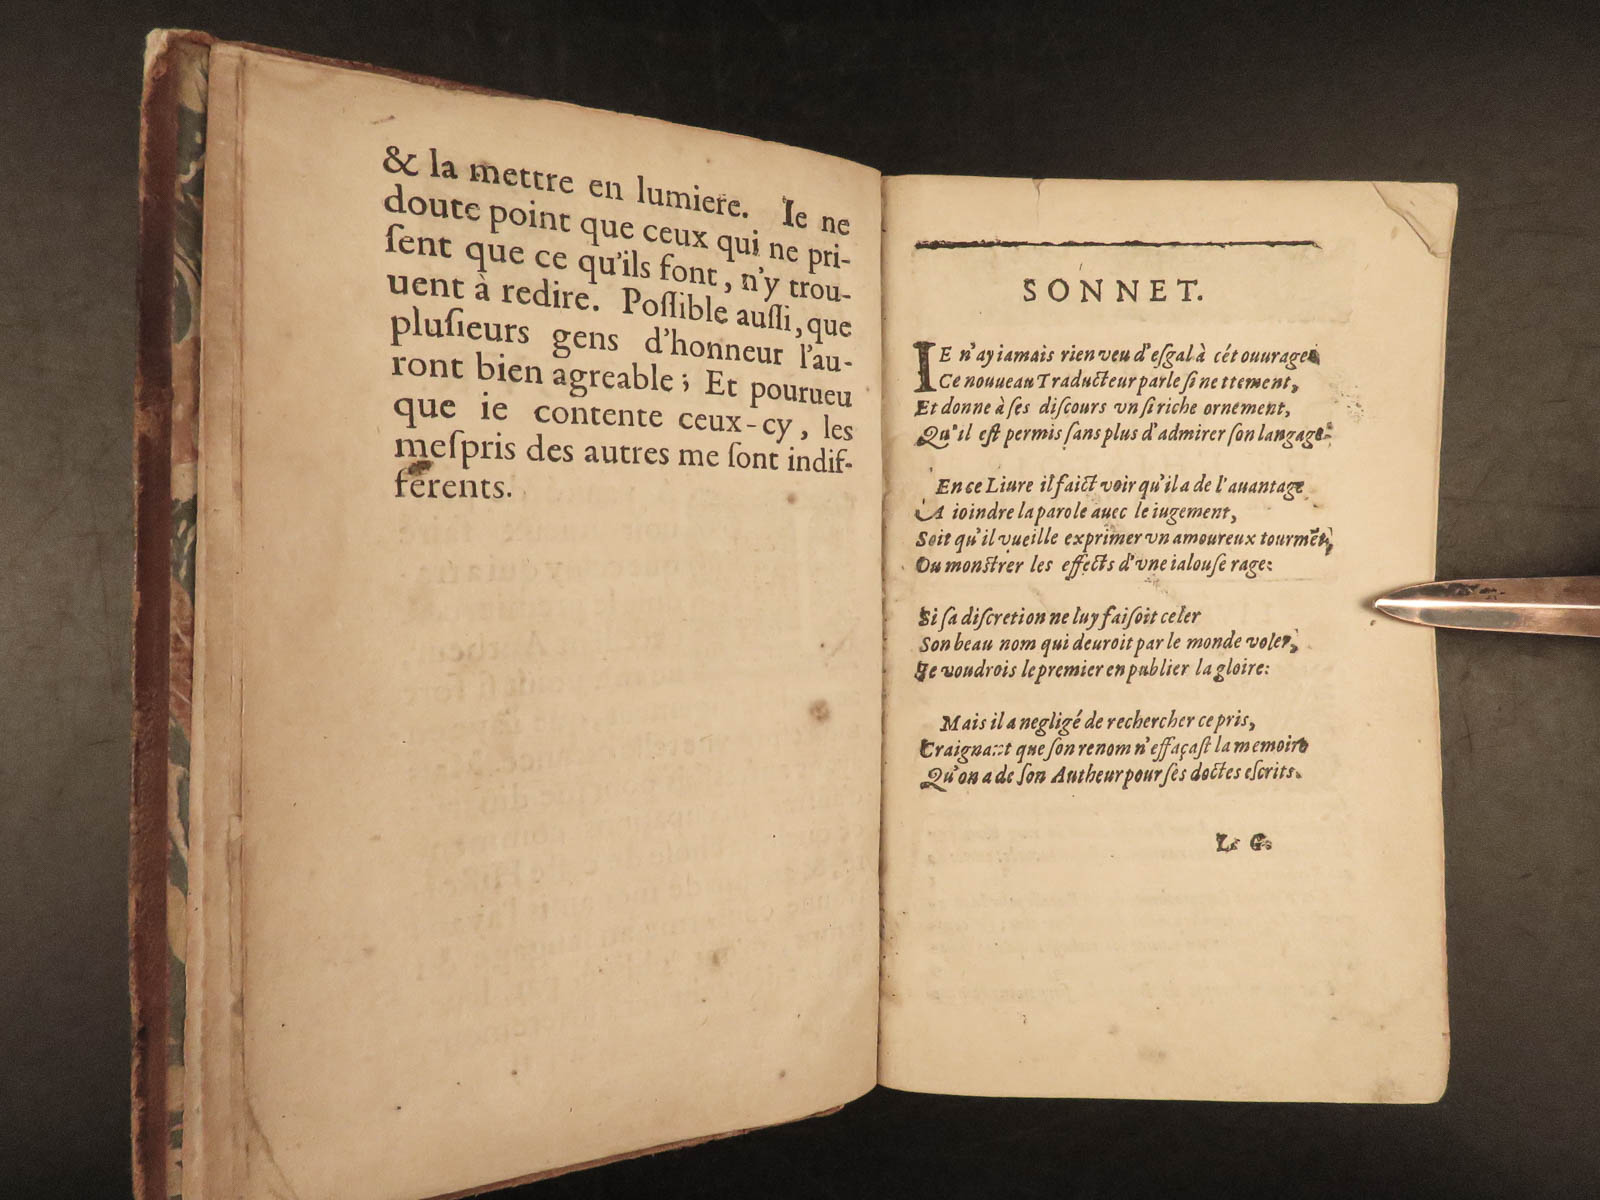 & la mettre en lumiere. Ie ne
doute point que ceux qui ne pri-
ſent que ce qu'ils font, n'y trou-
uent à redire. Poſſible auſſi, que
pluſieurs gens d'honneur l'au-
ront bien agreable; Et pourueu
que ie contente ceux-cy, les
meſpris des autres me ſont indif-
ferents.
SONNET.
IE n'ay iamais rien veu d'eſgal à cét ouurage
Ce nouueau Traducteur parle ſi nettement,
Et donne à ſes diſcours vn ſi riche ornement,
Qu'il eſt permis ſans plus d'admirer ſon langage.
En ce Liure il faict voir qu'il a de l'auantage
A ioindre la parole auec le iugement,
Soit qu'il vueille exprimer vn amoureux tourmēt,
Ou monſtrer les effects d'vne ialouſe rage:
Si ſa diſcretion ne luy faiſoit celer
Son beau nom qui deuroit par le monde voler,
Je voudrois le premier en publier la gloire:
Mais il a negligé de rechercher ce pris,
Craignant que ſon renom n'effaçaſt la memoire
Qu'on a de ſon Autheur pour ſes doctes eſcrits.
L. G.